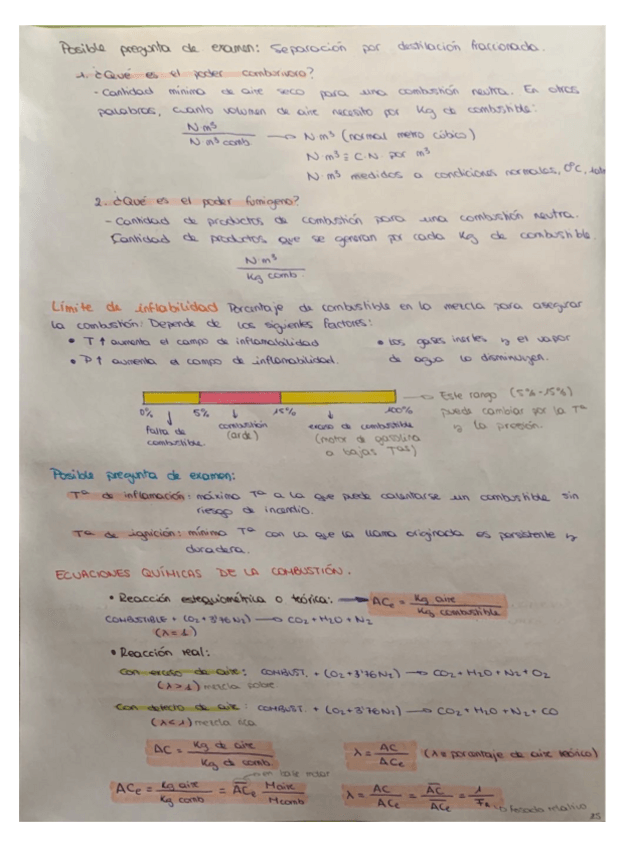 Posible pregunta de examen: Separación por destilación fraccionada.
1. ¿Qué es el poder comburívoro?
- Cantidad mínima de aire seco para una combustión neutra. En otras
palabras, cuanto volumen de aire necesito por Kg de combustible:
N·m³ / N·m³ comb → N·m³ (normal metro cúbico)
N·m³ ≡ C.N. por m³
N·m³ medidos a condiciones normales, 0ºC, 1atm
2. ¿Qué es el poder fumígeno?
- Cantidad de productos de combustión para una combustión neutra.
Cantidad de productos que se generan por cada Kg de combustible.
N·m³ / Kg comb.
Límite de inflabilidad Porcentaje de combustible en la mezcla para asegurar
la combustión: Depende de los siguientes factores:
• T ↑ aumenta el campo de inflamabilidad • Los gases inertes y el vapor
• P ↑ aumenta el campo de inflamabilidad. de agua lo disminuyen.
0% 5% 15% 100% → Este rango (5%-15%)
falta de combustible. combustión (arde) exceso de combustible (motor de gasolina a bajas Tªs) puede cambiar por la Tª y la presión.
Posible pregunta de examen:
Tª de inflamación: máxima Tª a la que puede calentarse un combustible sin
riesgo de incendio.
Tª de ignición: mínima Tª con la que la llama originada es persistente y
duradera.
ECUACIONES QUÍMICAS DE LA COMBUSTIÓN.
• Reacción estequiométrica o teórica: → ACe = Kg aire / Kg combustible
COMBUSTIBLE + (O2+3'76N2) → CO2+H2O+N2
(λ=1)
• Reacción real:
Con exceso de aire: COMBUST. + (O2+3'76N2) → CO2+H2O+N2+O2
(λ>1) mezcla pobre
Con defecto de aire: COMBUST. + (O2+3'76N2) → CO2+H2O+N2+CO
(λ<1) mezcla rica
AC = Kg de aire / Kg de comb. λ = AC / ACe (λ = porcentaje de aire teórico)
en base molar
ACe = Kg aire / Kg comb = A̅C̅e Maire / Mcomb λ = AC / ACe = A̅C̅ / A̅C̅e = 1 / FR → dosado relativo
25